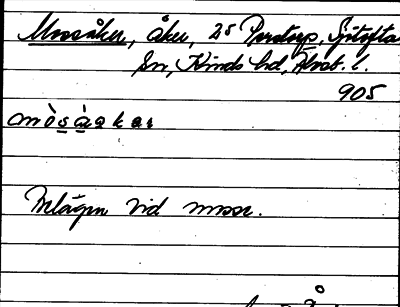 Mossåker, åker, 25 Perstorp, Gjitofta
Sn, Kinds hd, Älvsb. l.
905
mòsàakar
Belägen vid mosse.